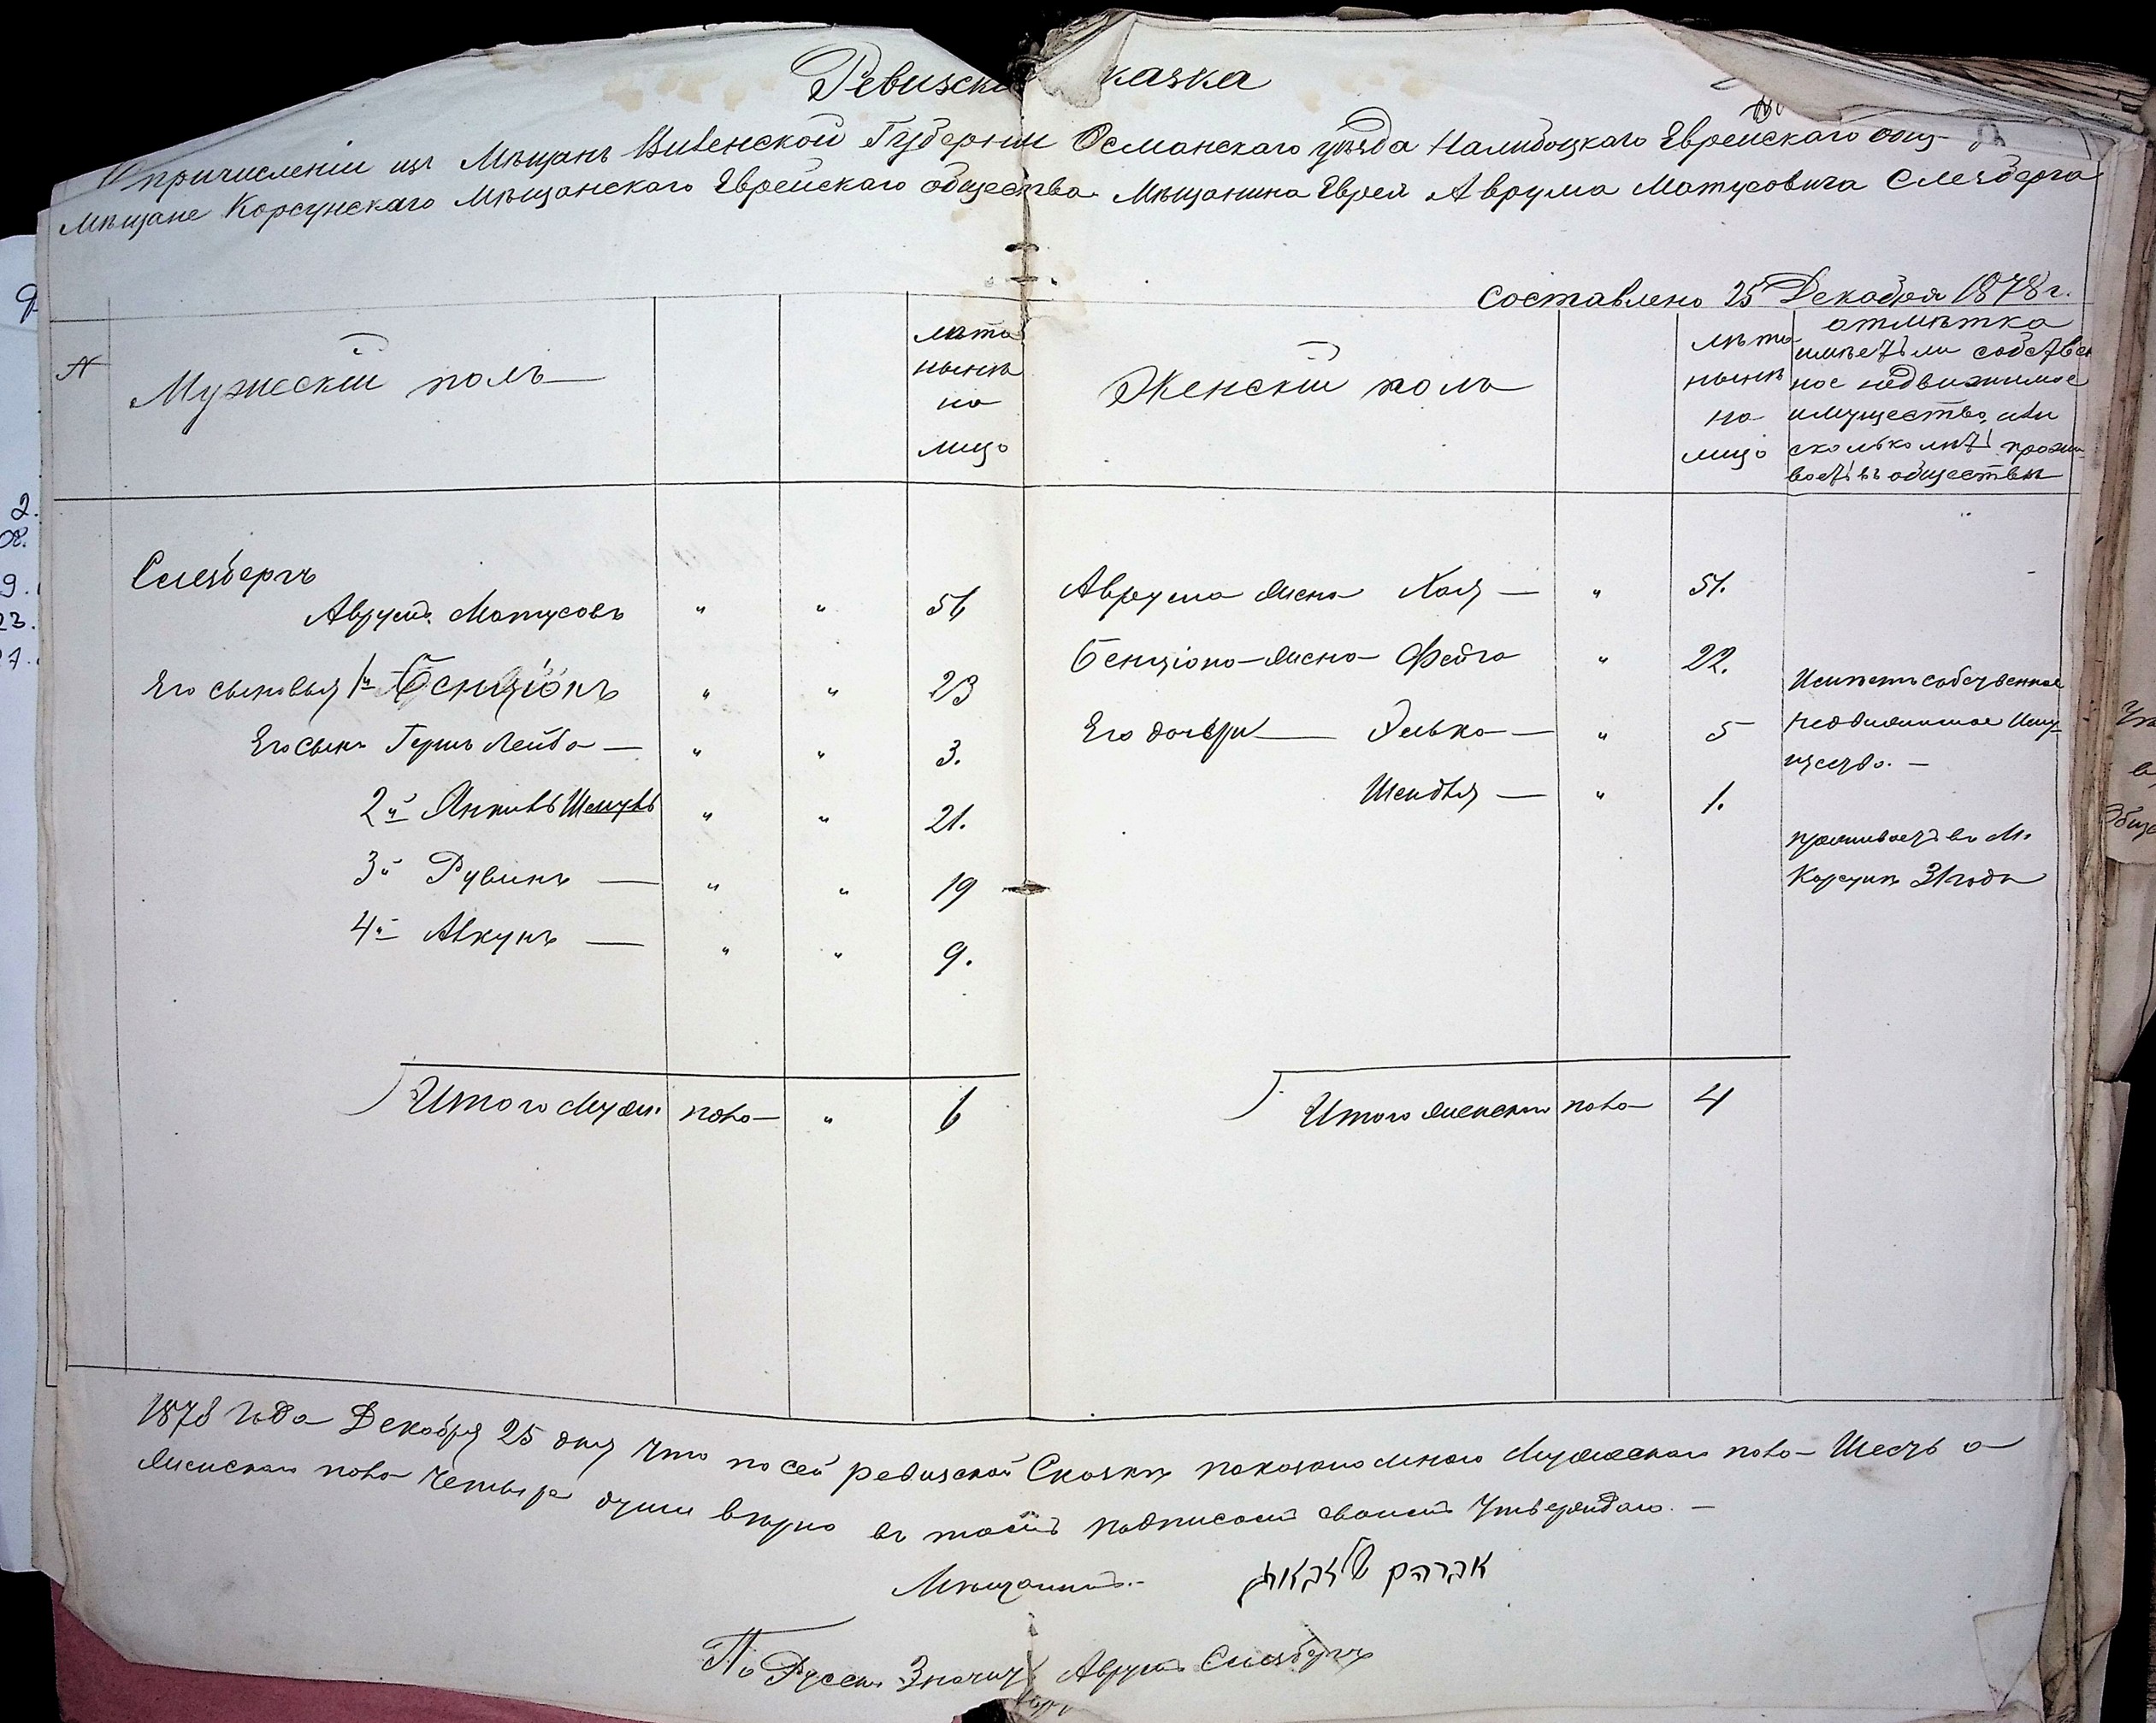 Ревизска казка
О причисленіи изъ Мѣщанъ Виленской Губерніи Осмянскаго уѣзда Налибоцкаго Еврейскаго общ-
Мѣщане Корсунскаго Мѣщанскаго Еврейскаго общества Мѣщанина Еврея Аврума Матусовича Слезберга
Составлено 25 Декабря 1878 г.
N
Мужескій полъ
лѣта
нынѣ
на
лицо
Женскій полъ
лѣта
нынѣ
на
лицо
отмѣтка
имѣетъ ли собствен
ное недвижимое
имущество, или
сколько лѣтъ прожи-
ваетъ въ обществѣ
Слезбергъ
Аврумъ Матусовъ " " 51
Его сыновья 1й Бенціонъ " " 23
Его сынъ Гершъ Лейба — " " 3.
2й Янкивъ Шмулъ " " 21.
3й Рувинъ — " " 19
4й Авкунъ — " " 9.
Итого Муж. пола — " 6
Аврума жена Хая — " 51.
Бенціона жена Фейга " 22.
Его дочери — Элька — " 5
Шендля — " 1.
Имѣетъ собственное
недвижимое Иму-
щество. —
проживаетъ въ М.
Корсунѣ 31 годъ
Итого женскаго пола — 4
1878 года Декабря 25 дня Что по сей ревизской Сказкѣ показано мною Мужескаго пола Шесть а
Женскаго пола Четыре души вѣрно въ томъ подписомъ своимъ Утверждаю. —
Мѣщанинъ.
אברהם סלעזבארג
По Русски Значитъ Аврумъ Слезбергъ